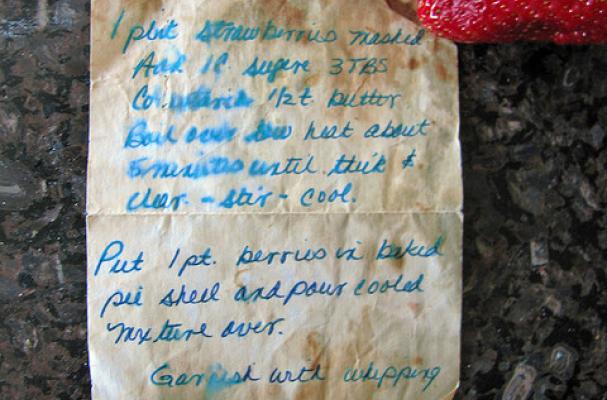 1 pint strawberries mashed
Add 1C. sugar 3 TBS
Cornstarch 1/2 t. butter
Boil over low heat about
5 minutes until thick &
clear. - stir - cool.
Put 1 pt. berries in baked
pie shell and pour cooled
mixture over.
Garnish with whipping